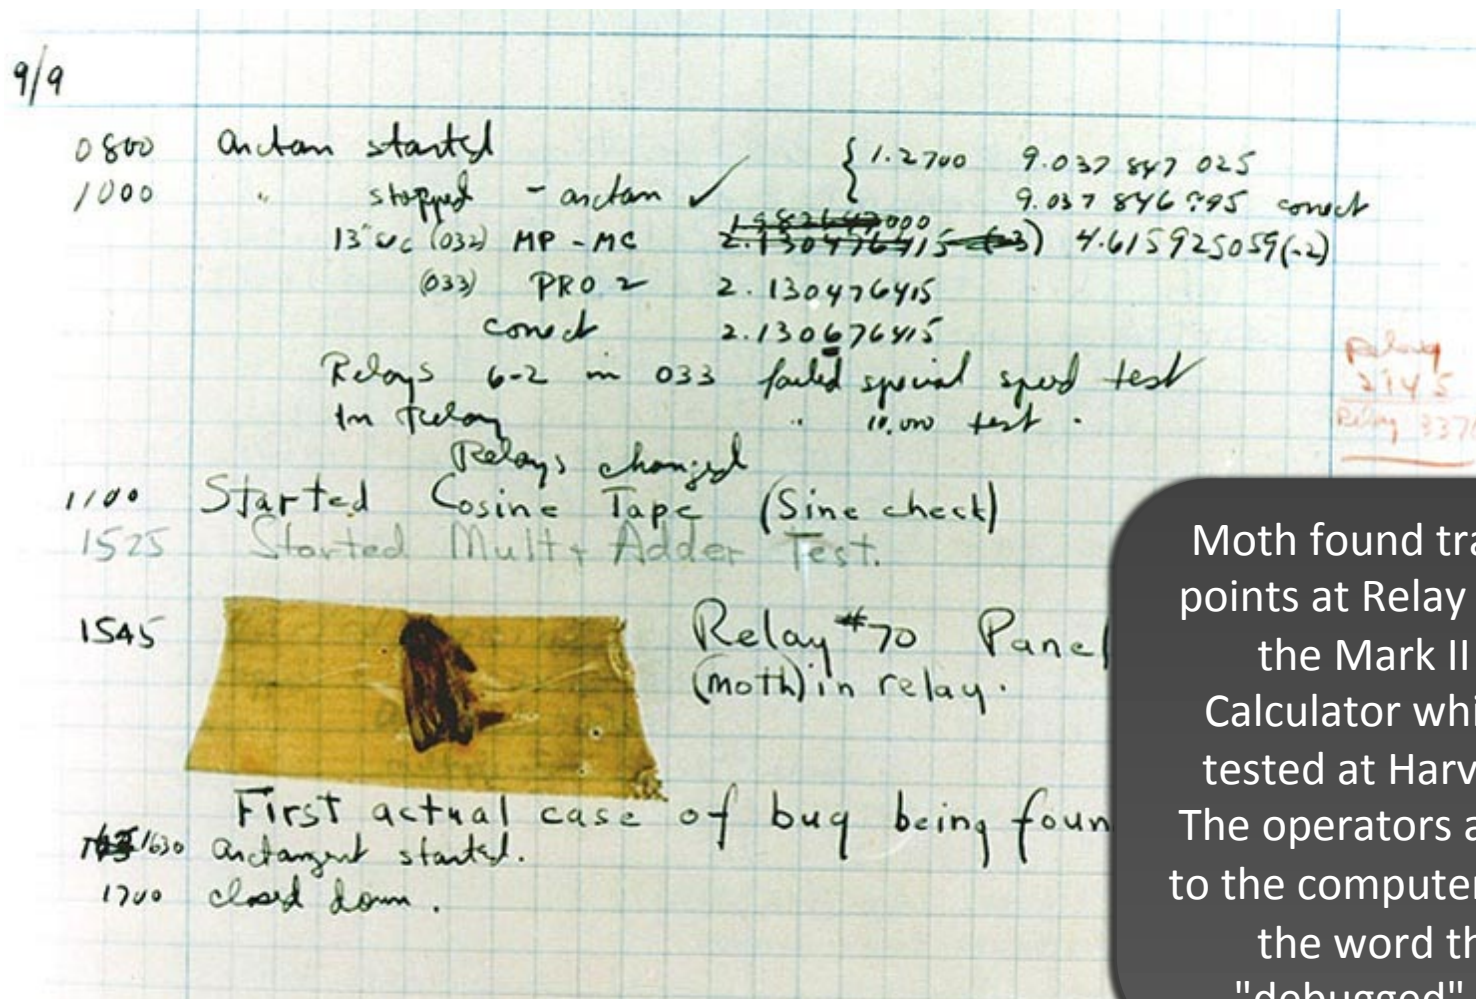 9/9
0800 arctan started { 1.2700 9.037 847 025
1000 " stopped - arctan ✓ 9.037 846 995 correct
13"uc (032) MP - MC 2.130476415 (-3) 4.615925059(-2)
(033) PRO 2 2.130476415
correct 2.130676415
Relays 6-2 in 033 failed special speed test
In Relay " 10,000 test .
Relay
2145
Relay 337
Relays changed
1100 Started Cosine Tape (Sine check)
1525 Started Mult + Adder Test.
1545 Relay #70 Panel
(moth) in relay.
First actual case of bug being foun
1630 arctangent started.
1700 closed down .
Moth found tra
points at Relay
the Mark II
Calculator whi
tested at Harv
The operators a
to the computer
the word th
"debugged"